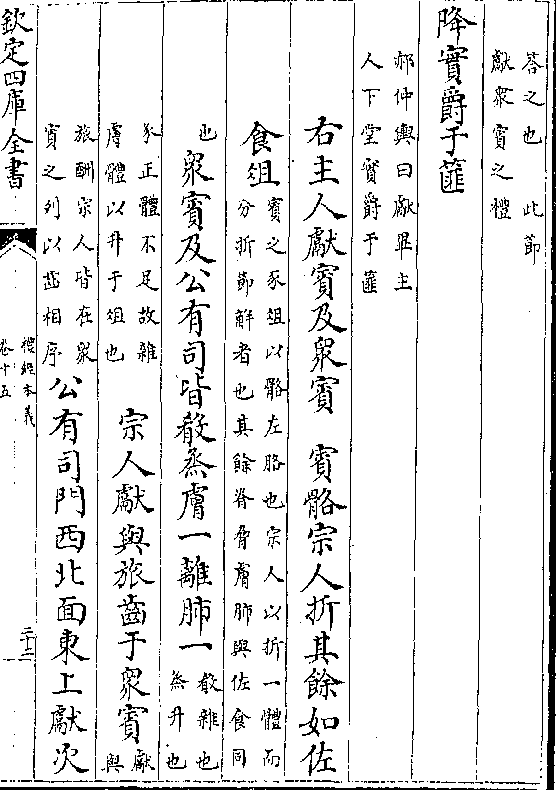 答之也　此節
獻衆賓之禮
降實爵于篚
郝仲輿曰獻畢主
人下堂實爵于篚
右主人獻賓及衆賓　賓骼宗人折其餘如佐
食俎
賓之豕俎以骼左胳也宗人以折一體而
分折節解者也其餘脊脅膚肺與佐食同
也
衆賓及公有司皆殽烝膚一離肺一
殽雜也
烝升也
豕正體不足故雜
膚體以升于俎也
宗人獻與旅齒于衆賓
獻
與
旅酬宗人皆在衆
賓之列以齒相序
公有司門西北面東上獻次
欽定四庫全書
禮經本義
卷十五
二十二